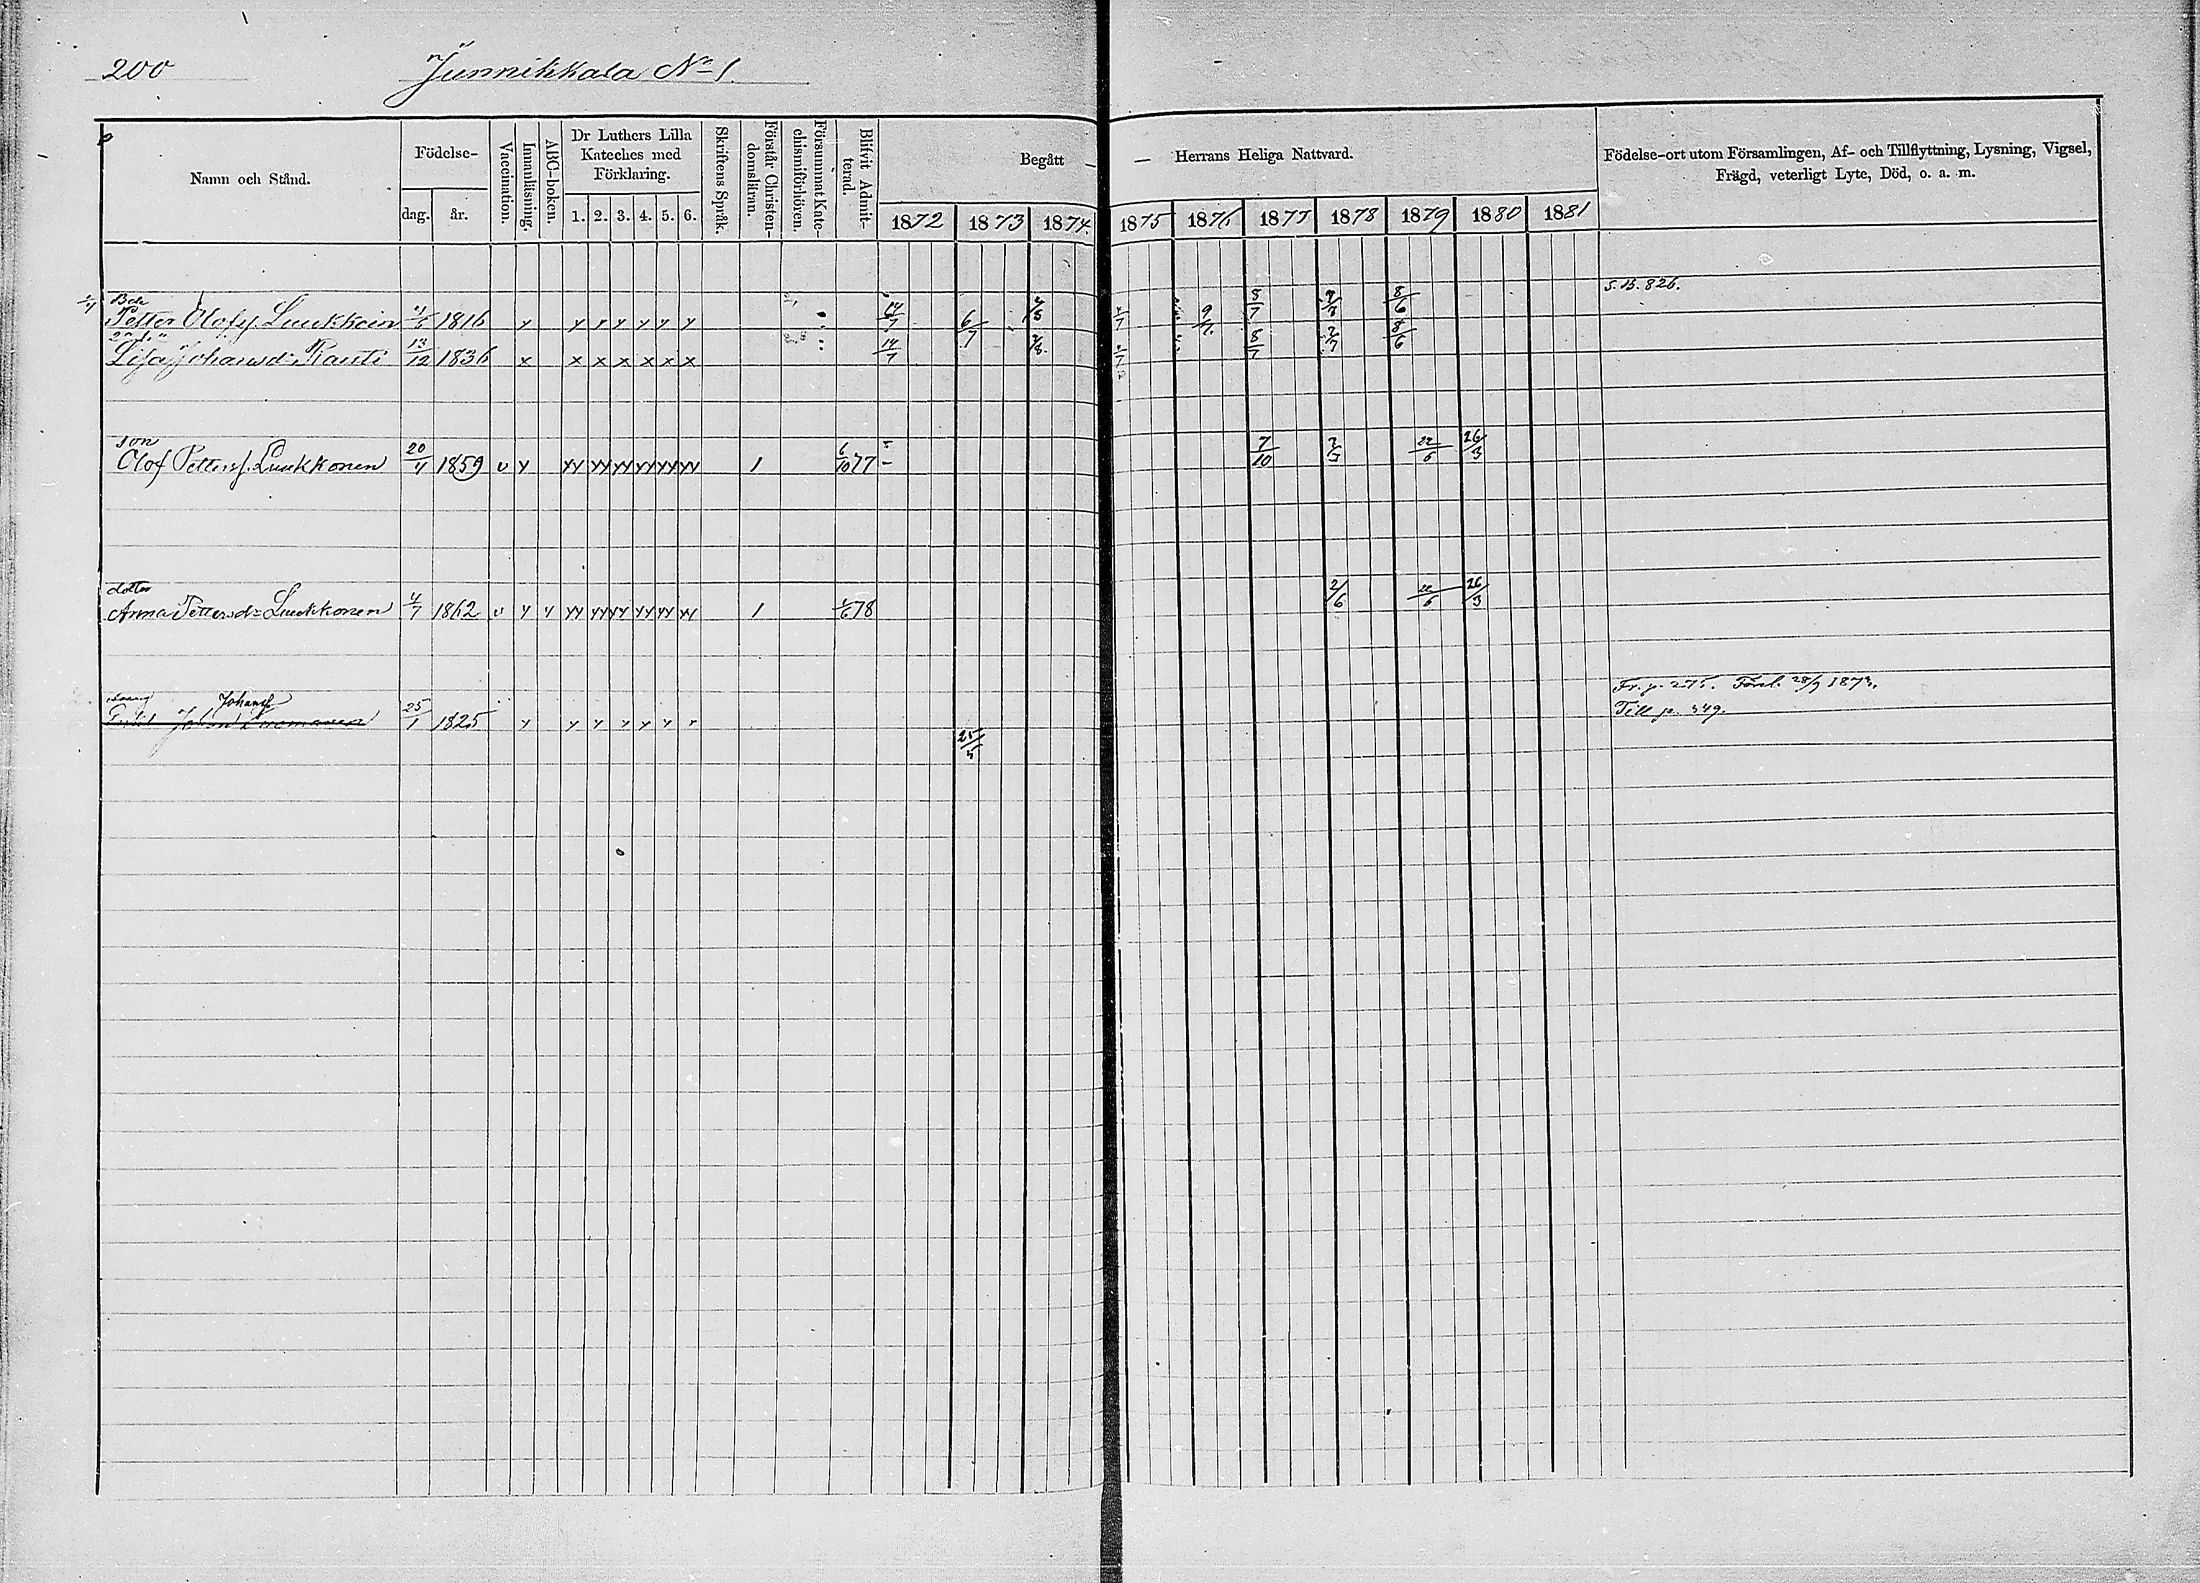 200 Junnikkala No 1.
Namn och Stånd.
Födelse-
dag. år.
Vaccination.
Innanläsning.
ABC-boken.
Dr Luthers Lilla
Kateches med
Förklaring.
1. 2. 3. 4. 5. 6.
Skriftens Språk.
Förstår Christen-
domsläran.
Försummat Kate-
chismiförhören.
Blifvit Admit-
terad.
Begått —
— Herrans Heliga Nattvard.
1872 1873 1874. 1875 1876 1877 1878 1879 1880 1881
Födelse-ort utom Församlingen, Af- och Tillflyttning, Lysning, Vigsel,
Frägd, veterligt Lyte, Död, o. a. m.
S.B. 826.
Petter Olofsf. 1816 y y y y y y y 14/7 6/7 9/7 8/7 8/6
Lisa Johansd: Rauti 13/12 1836 x x x x x x x 14/7 8/7 2/7 8/6
son
Olof Pettersf. Luukkonen 20/4 1859 v y yy yy yy yy yy yy 1 6/10 77 7/10 22/6 26/3
dotter
Anna Pettersd: Luukkonen 4/7 1862 v y y yy yy yy yy yy yy 1 78 2/6 26/3
Johansf
25/1 1825 y y y y y y 25/5
Fr. p. 275.
Till p. 349.